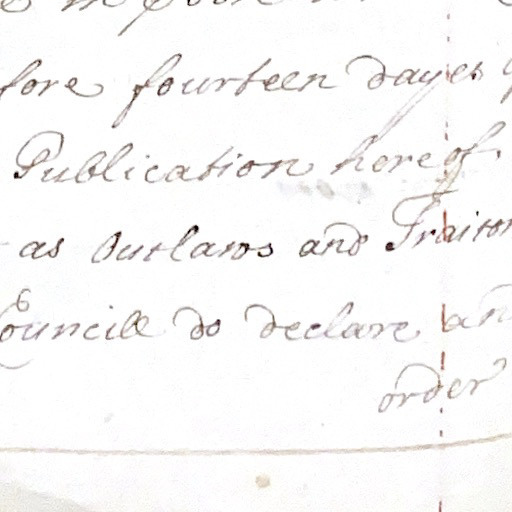 fore fourteen dayes
Publication hereof.
as Outlaws and Traitor
Councill do declare an
order